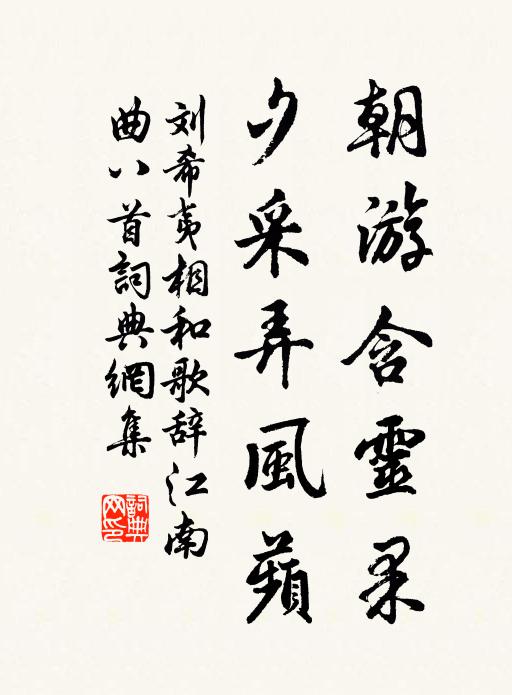 朝游含靈果
夕采弄風蘋
刘希夷相和歌辞江南
曲八首詞典網集
詞典网印